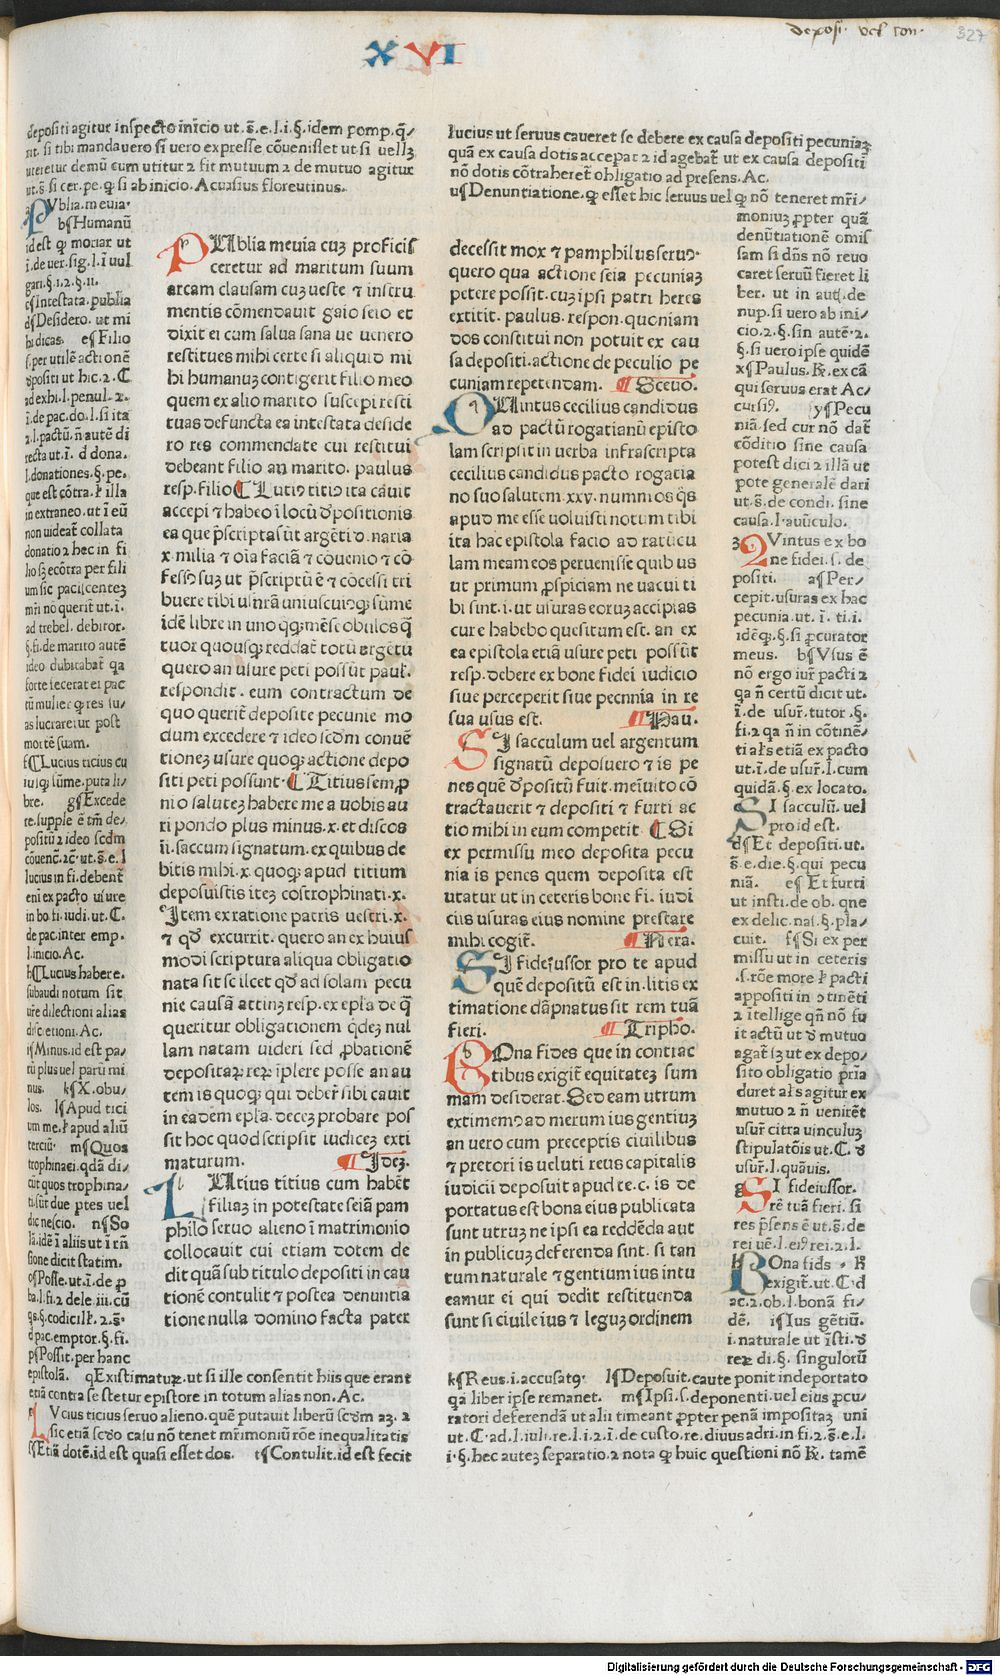 deposi. vel con.
327
XVI
depositi agitur inspecto inicio ut.s̄.e.l.i.§.idem pomp.q̄/
rit. si tibi manda uero si uero expresse cōuenisset ut si uellꝫ
uteretur demū cum utitur ⁊ fit mutuum ⁊ de mutuo agitur
ut.s̄. si cer.pe.ꝙ si ab inicio. Acursius florentinus.
PVblia.meuia.
b¶Humanū
id est ꝙ moriar ut
i.de uer.sig.l.i uul
gari.§.1.2.§.ii.
c¶Intestata.publia
d¶Desidero. ut mi
hi dicas. e¶Filio
s.per utilē actionē
dpositi ut hic.2.C
ad exhi.l.penul.2.
i.de pac.do.l.si ita
2.l.pactū.n̄ autē di
recta ut.i. d dona.
l.donationes.§.pe.
que est cōtra.ł illa
in extraneo.ut i eū
non uideat̄ collata
donatio 2 hec in fi
lio sꝫ ecōtra per fili
um sic paciscentez
mr̄i nō querit̄ ut.i.
ad trebel.debitor.
§.fi.de marito autē
ideo dubitabat̄ qa
forte fecerat ei pac
tū mulier ꝙ res su/
as lucraretur post
mortē suam.
f¶Lucius ticius cu
iusꝗ sūme.puta li/
bre. g¶Excede
re.supple ē tm̄ de/
positū 2 ideo scdm
cōuenc̄.2c̄.ut.s̄.e.l
lucius in fi.debent̄
eni ex pacto usure
in bo.fi.iudi.ut.C.
de pac.inter emp.
l.inicio.Ac.
h¶Lucius habere.
subaudi notum sit
ure dilectioni alias
discretioni.Ac.
i¶Minus.id est pa/
rū plus uel parū mi
nus. k¶X.obu/
los. l¶Apud tici
um me.ł apud aliū
terciū. m¶Quos
trophinaei.qdā di/
cūt quos trophina/
ti sūt due ptes uel
dic nescio. n¶So
lā.idē i aliis ut i rn̄
sione dicit statim.
o¶Posse.ut.i.de ꝓ
ba.l.fi.2 dele.iii.cū
qs.§.codicilł.2.s̄.
d pac.emptor.§.fi.
p¶Possit.per hanc
epistolā. q¶Existimatuꝝ.ut si ille consentit hiis que erant
etiā contra se stetur epistore in totum alias non.Ac.
LVcius ticius seruo alieno.quē putauit liberū scdm aʒ. 2
sic etiā scdo casu nō tenet mr̄imoniū rōe inequalitatis
s¶Etiā dotē.id est quasi esset dos. t¶Contulit.id est fecit
PUblia meuia cuꝫ proficis
ceretur ad maritum suum
arcam clausam cuꝫ ueste ⁊ instru
mentis cōmendauit gaio seio et
dixit ei cum salua sana ue uenero
restitues mihi certe si aliquid mi
hi humanuꝫ contigerit filio meo
quem ex alio marito suscepi resti
tuas defuncta ea intestata deside
ro res commendate cui restitui
debeant filio an marito. paulus
resp.filio ¶ Lutiꝰ titiꝰ ita cauit
accepi ⁊ habeo i locū dpositionis
ea que p̄scripta sūt argēti d.naria
x.milia ⁊ oīa faciā ⁊ cōuenio ⁊ cō
fessꝰ suꝫ ut p̄scriptū ē ⁊ cōcessi tri
buere tibi usurā uniuscuiꝰꝗ sūme
idē libre in uno qꝗ mēse obulos q̄
tuor quousꝗ reddat̄ totū argētū
quero an usure peti possūt paul̄.
respondit. eum contractum de
quo querit̄ deposite pecunie mo
dum excedere ⁊ ideo scdm conuē
tionez usure quoꝗ actione depo
siti peti possunt. ¶ Titius sem ꝓ
nio salutez habere me a uobis au
ri pondo plus minus.x.et discos
ii.saccum signatum.ex quibus de
bitis mihi.x.quoꝗ apud titium
deposuistis itez costrophinati.x.
Item ex ratione patris uestri.x.
⁊ qd̄ excurrit.quero an ex huius
modi scriptura aliqua obligatio
nata sit scilcet qd̄ ad solam pecu
nie causā attinꝫ resp.ex epl̄a de q̄
queritur obligationem qdeꝫ nul
lam natam uideri sed ꝓbationē
depositaꝝ reꝝ iplere posse an au
tem is quoꝗ qui deber̄ sibi cauit
in eadem epl̄a.decez probare pos
sit hoc quod scripsit iudicez exti
maturum. ¶ Idez.
LUtius titius cum habēt
filiaꝫ in potestate seiā pam
philo seruo alieno i matrimonio
collocauit cui etiam dotem de
dit quā sub titulo depositi in cau
tionē contulit ⁊ postea denuntia
tione nulla domino facta pater
lucius ut seruus caueret se debere ex causa depositi pecuniaꝫ
quā ex causa dotis accepat 2 id agebat̄ ut ex causa depositi
nō dotis cōtraheret̄ obligatio ad presens.Ac.
u¶Denuntiatione.ꝙ esset hic seruus uel ꝙ nō teneret mr̄i/
decessit mox ⁊ pamphilus seruꝰ.
quero qua actione seia pecuniaꝫ
petere possit.cuꝫ ipsi patri heres
extitit. paulus.respon.quoniam
dos constitui non potuit ex cau
sa depositi.actione de peculio pe
cuniam repetendam. ¶ Sceuo.
QUintus cecilius candidus
ad pactū rogatianū episto
lam scripsit in uerba infrascripta
cecilius candidus pacto rogatia
no suo salutem.xxv.nummos q̄s
apud me esse uoluisti notum tibi
ita hac epistola facio ad ratiūcu
lam meam eos peruenisse quibus
ut primum ꝓspiciam ne uacui ti
bi sint.i.ut usuras eoruꝫ accipias
cure habebo quesitum est. an ex
ea epistola etiā usure peti possūt
resp.debere ex bone fidei iudicio
siue perceperit siue pecnnia in re
sua usus est. ¶ Pau.
SI sacculum uel argentum
signatū deposuero ⁊ is pe
nes quē dpositū fuit.me īuito cō
tractauerit ⁊ depositi ⁊ furti ac
tio mihi in eum competit. ¶ Si
ex permissu meo deposita pecu
nia is penes quem deposita est
utatur ut in ceteris bone fi.iudi
ciis usuras eius nomine prestare
mihi cogit̄. ¶ Nera.
SI fideiussor pro te apud
quē depositū est in.litis ex
timatione dāpnatus sit rem tuā
fieri. ¶ Tripho.
BOna fides que in contrac
tibus exigit̄ equitatez sum
mam desiderat. Sed eam utrum
extimemꝰ ad merum ius gentiuꝫ
an uero cum preceptis ciuilibus
⁊ pretoriis ueluti reus capitalis
iudicii deposuit apud te.c.is de
portatus est bona eius publicata
sunt utruꝫ ne ipsi ea reddēda aut
in publicuꝫ deferenda sint. si tan
tum naturale ⁊ gentium ius intu
eamur ei qui dedit restituenda
sunt si ciuile ius ⁊ leguꝫ ordinem
moniuꝫ ꝓpter quā
denūtiationē omis
sam si dn̄s nō reuo
caret seruū fieret li
ber. ut in aut̄.de
nup.si uero ab ini/
cio.2.§.sin autē.2.
§.si uero ipse quidē
x¶Paulus.R̄.ex cā
qui seruus erat Ac/
cursiꝰ. y¶Pecu
niā.sed cur nō dat̄
cōditio sine causa
potest dici 2 illā ut
pote generalē dari
ut.s̄.de condi.sine
causa.l.auūculo.
QVintus ex bo
ne fidei.s.de
positi. a¶Per/
cepit.usuras ex hac
pecunia.ut.i.ti.i.
idēꝗ.§.si ꝓcurator
meus. b¶Vsus ē
nō ergo iur̄ pacti 2
qa n̄ certū dicit ut.
i.de usur̄.tutor.§.
fi.2 qa n̄ in cōtinē/
ti al̄s etiā ex pacto
ut.i.de usur̄.l.cum
quidā.§.ex locato.
SI sacculū.uel
pro id est.
d¶Et depositi.ut.
s̄.e.die.§.qui pecu
niā. e¶Et furti
ut insti.de ob.qne
ex delic.nas.§.pla/
cuit. f¶Si ex per
missu ut in ceteris
.s.rōe more ł pacti
appositi in ɔtinēti
2 ītellige qn̄ nō fu
it actū ut d mutuo
agat̄ sꝫ ut ex depo/
sito obligatio pr̄ia
duret al̄s agitur ex
mutuo 2 n̄ uenirēt
usur̄ citra uinculuꝫ
stipulatōis ut.C.d
usur̄.l.quāuis.
SI fideiussor.
rē tuā fieri.si
res p̄sens ē ut.s̄.de
rei uē.l.eiꝰ rei.2.l.
BOna fids. h
exigit̄.ut.C.d
ac.2.ob.l.bonā fi/
dē. i¶Ius gētiū.
i.naturale ut īsti.d
reꝝ di.§.singulorū
k¶Reus.i.accusatꝰ. l¶Deposuit.caute ponit in deportato
qa liber ipse remanet. m¶Ipsi.s.deponenti.uel eius ꝓcu/
ratori deferendā ut alii timeant ꝓpter penā impositaꝫ uni
ut.C.ad.l.iuli.re.l.i.2.i.de custo.re.diuus adri.in fi.2.s̄.e.l.
i.§.hec autez separatio.2 nota ꝙ huic questioni nō R̄. tamē
Digitalisierung gefördert durch die Deutsche Forschungsgemeinschaft - DFG